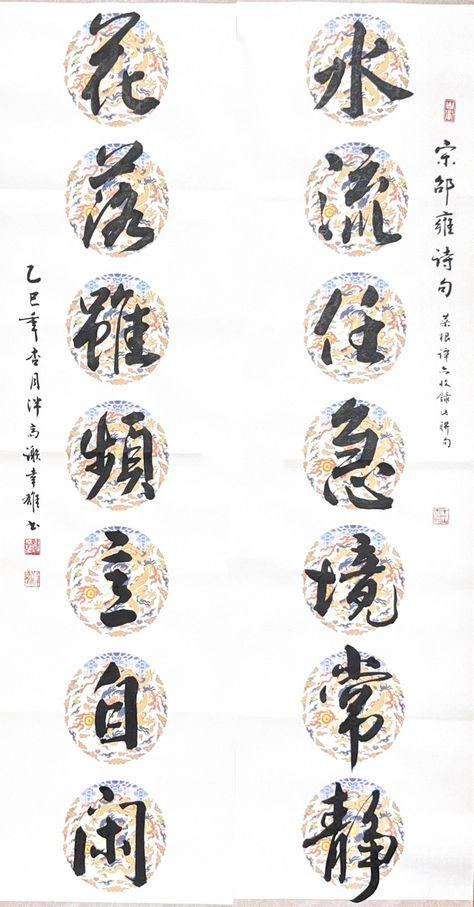 宋邵雍诗句
菜根谭亦收録此联句
水流任急境常静
花落雖頻意自闲
乙巳年杏月泮高谢幸雄书